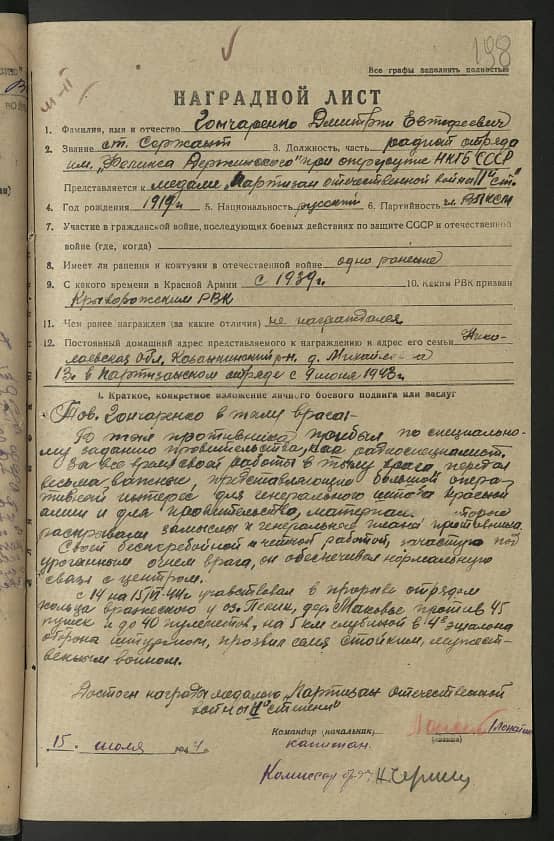 198
Все графы заполнять полностью
НАГРАДНОЙ ЛИСТ
1. Фамилия, имя и отчество Гончаренко Дмитрий Евтофеевич
2. Звание ст. Сержант 3. Должность, часть радист отряда
им. "Феликса Держинского" при опергруппе НКГБ СССР
Представляется к медали "Партизан отечественной войны II" ст."
4. Год рождения 1919 г. 5. Национальность русский 6. Партийность чл. ВЛКСМ
7. Участие в гражданской войне, последующих боевых действиях по защите СССР и отечественной
войне (где, когда)
8. Имеет ли ранения и контузии в отечественной войне одно ранение
9. С какого времени в Красной Армии с 1939 г. 10. Каким РВК призван
Крыворожским РВК
11. Чем ранее награжден (за какие отличия) не награждался
12. Постоянный домашний адрес представляемого к награждению и адрес его семьи Нико-
лаевская обл, р-н. д.
13. в партизанском отряде с 9 июня 1943 г.
I. Краткое, конкретное изложение личного боевого подвига или заслуг
Тов. Гончаренко в тылу врага:
В тыл противника прибыл по специально-
му заданию правительства, как радиоспециалист.
За все время своей работы в тылу врага, передал
весьма важный, представляющий большой опера-
тивный интерес для генерального штаба Красной
армии и для правительства, материал.
раскрывали замыслы и генерального плана противника.
Своей бесперебойной и четкой работой, зачастую под
ураганным огнем врага, он обеспечивал нормальную
связь с центром.
С 14 на 15/VI-44 г участвовал в прорыве отрядом
кольца вражеского у оз. Пелик, дер. Маковье против 45
пушек и до 40 пулеметов, на 5 км глубиной в 4е эшалона
оборона штурмом, проявил себя стойким, мужест-
венным воином.
Достоин награды медалью "Партизан отечественной
войны II" степени"
Командир (начальник)
капитан.
15. июля 194 4 г.
Комиссар